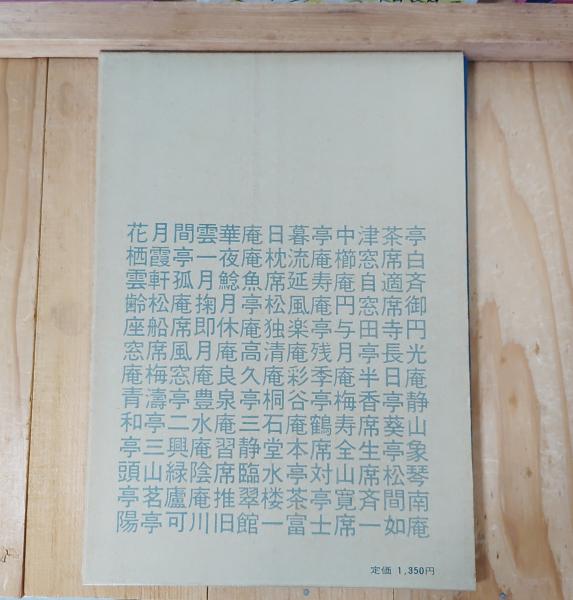 花月間雲華庵日暮亭中津茶亭
栖霞亭一夜庵枕流庵櫛窓席白
雲軒孤月鯰魚席延寿庵自適斉
齢松庵掬月亭松風庵円窓席御
座船席即休庵独楽亭与田寺円
窓席風月庵高清庵残月亭長光
庵梅窓庵良久庵彩季庵半日庵
青濤亭豊泉亭桐谷亭梅香亭静
和亭二水庵三石庵鶴寿席葵山
亭三興庵習静堂本席全生亭象
頭山緑陰席臨水亭対山席松琴
亭茗廬庵推翠楼茶亭寛斉間南
陽亭可川旧館一富士席一如庵
定価 1,350円